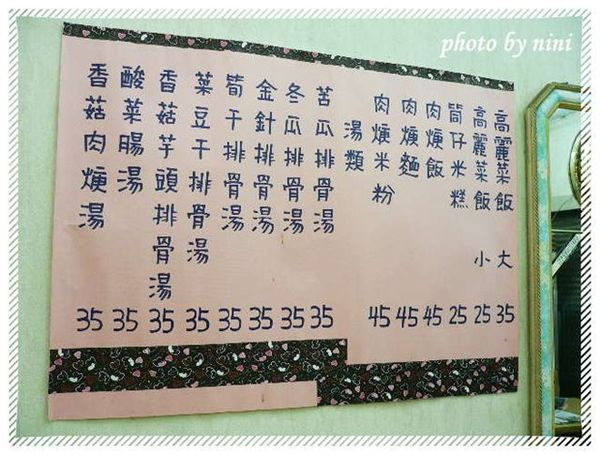 photo by nini
高麗菜飯 大 35
高麗菜飯 小 25
筒仔米糕 25
肉焿飯 45
肉焿麵 45
肉焿米粉 45
湯類
苦瓜排骨湯 35
冬瓜排骨湯 35
金針排骨湯 35
筍干排骨湯 35
菜豆干排骨湯 35
香菇芋頭排骨湯 35
酸菜腸湯 35
香菇肉焿湯 35